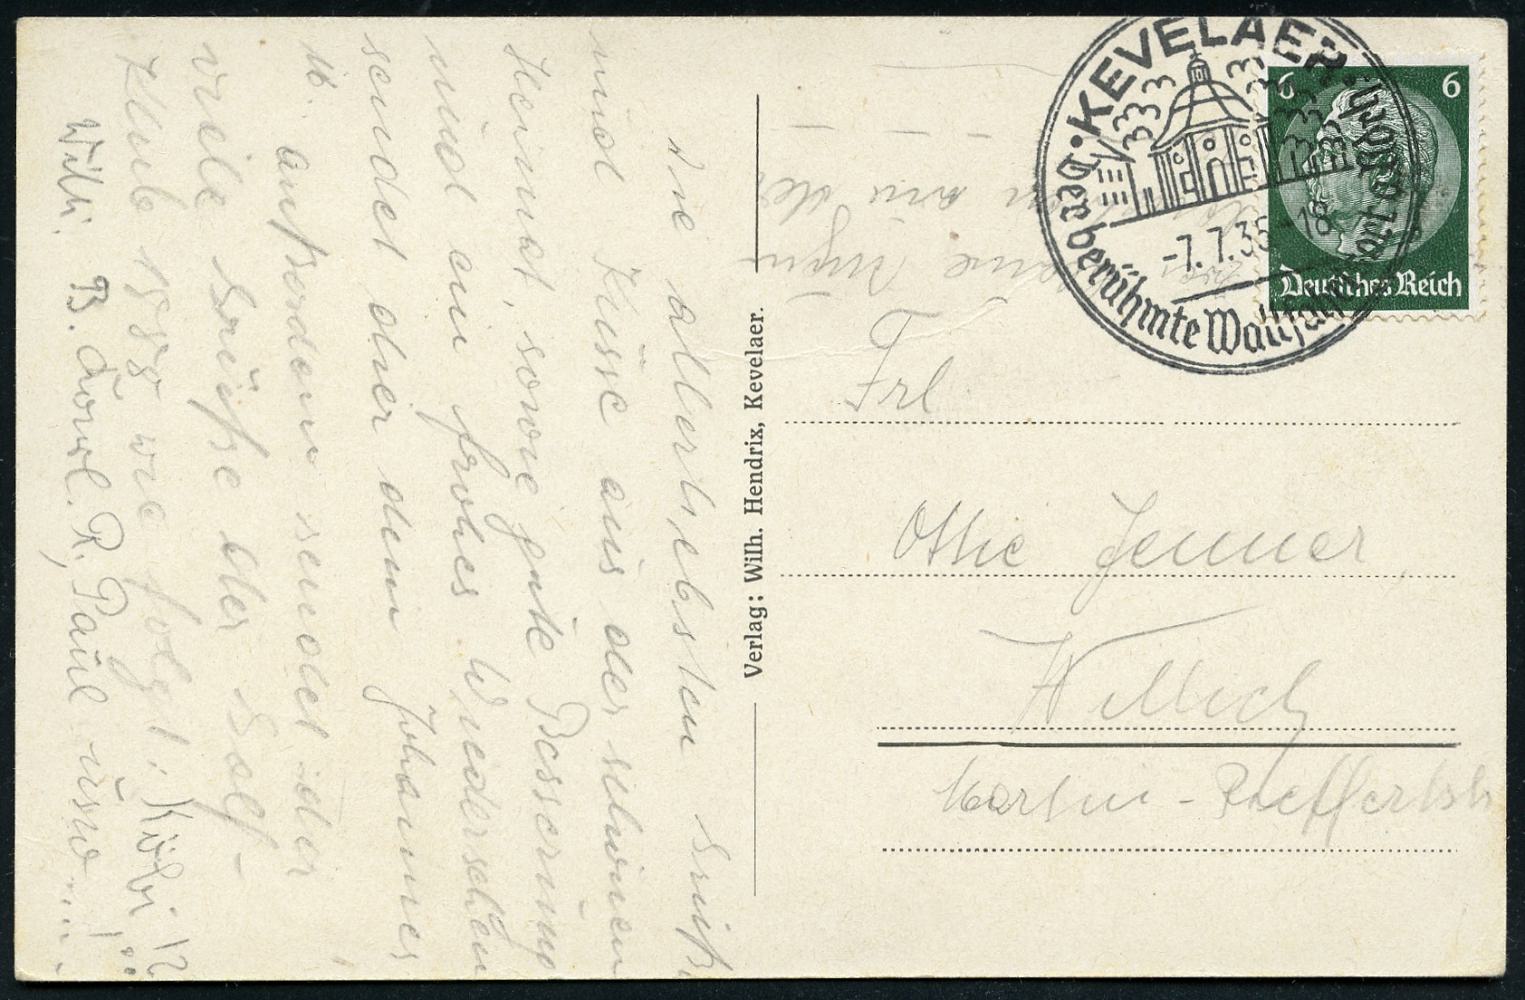 Die allerliebsten Grüß.
und Küsse aus der schönen
Heimat, sowie gute Besserung
und ein frohes Wiedersehen
sendet dier dein Johannes
außerdem sendet dier
viele Grüße der Golf-
Klub 1888 wie folgt:
Willi. B. R, Paul usw....
Verlag: Wilh. Hendrix, Kevelaer.
KEVELAER
Der berühmte Wallfahrtsort
-7.7.35-18
6 6
Deutsches Reich
Frl
Ottie Jenner
Willich
Martin-Rieffertstr